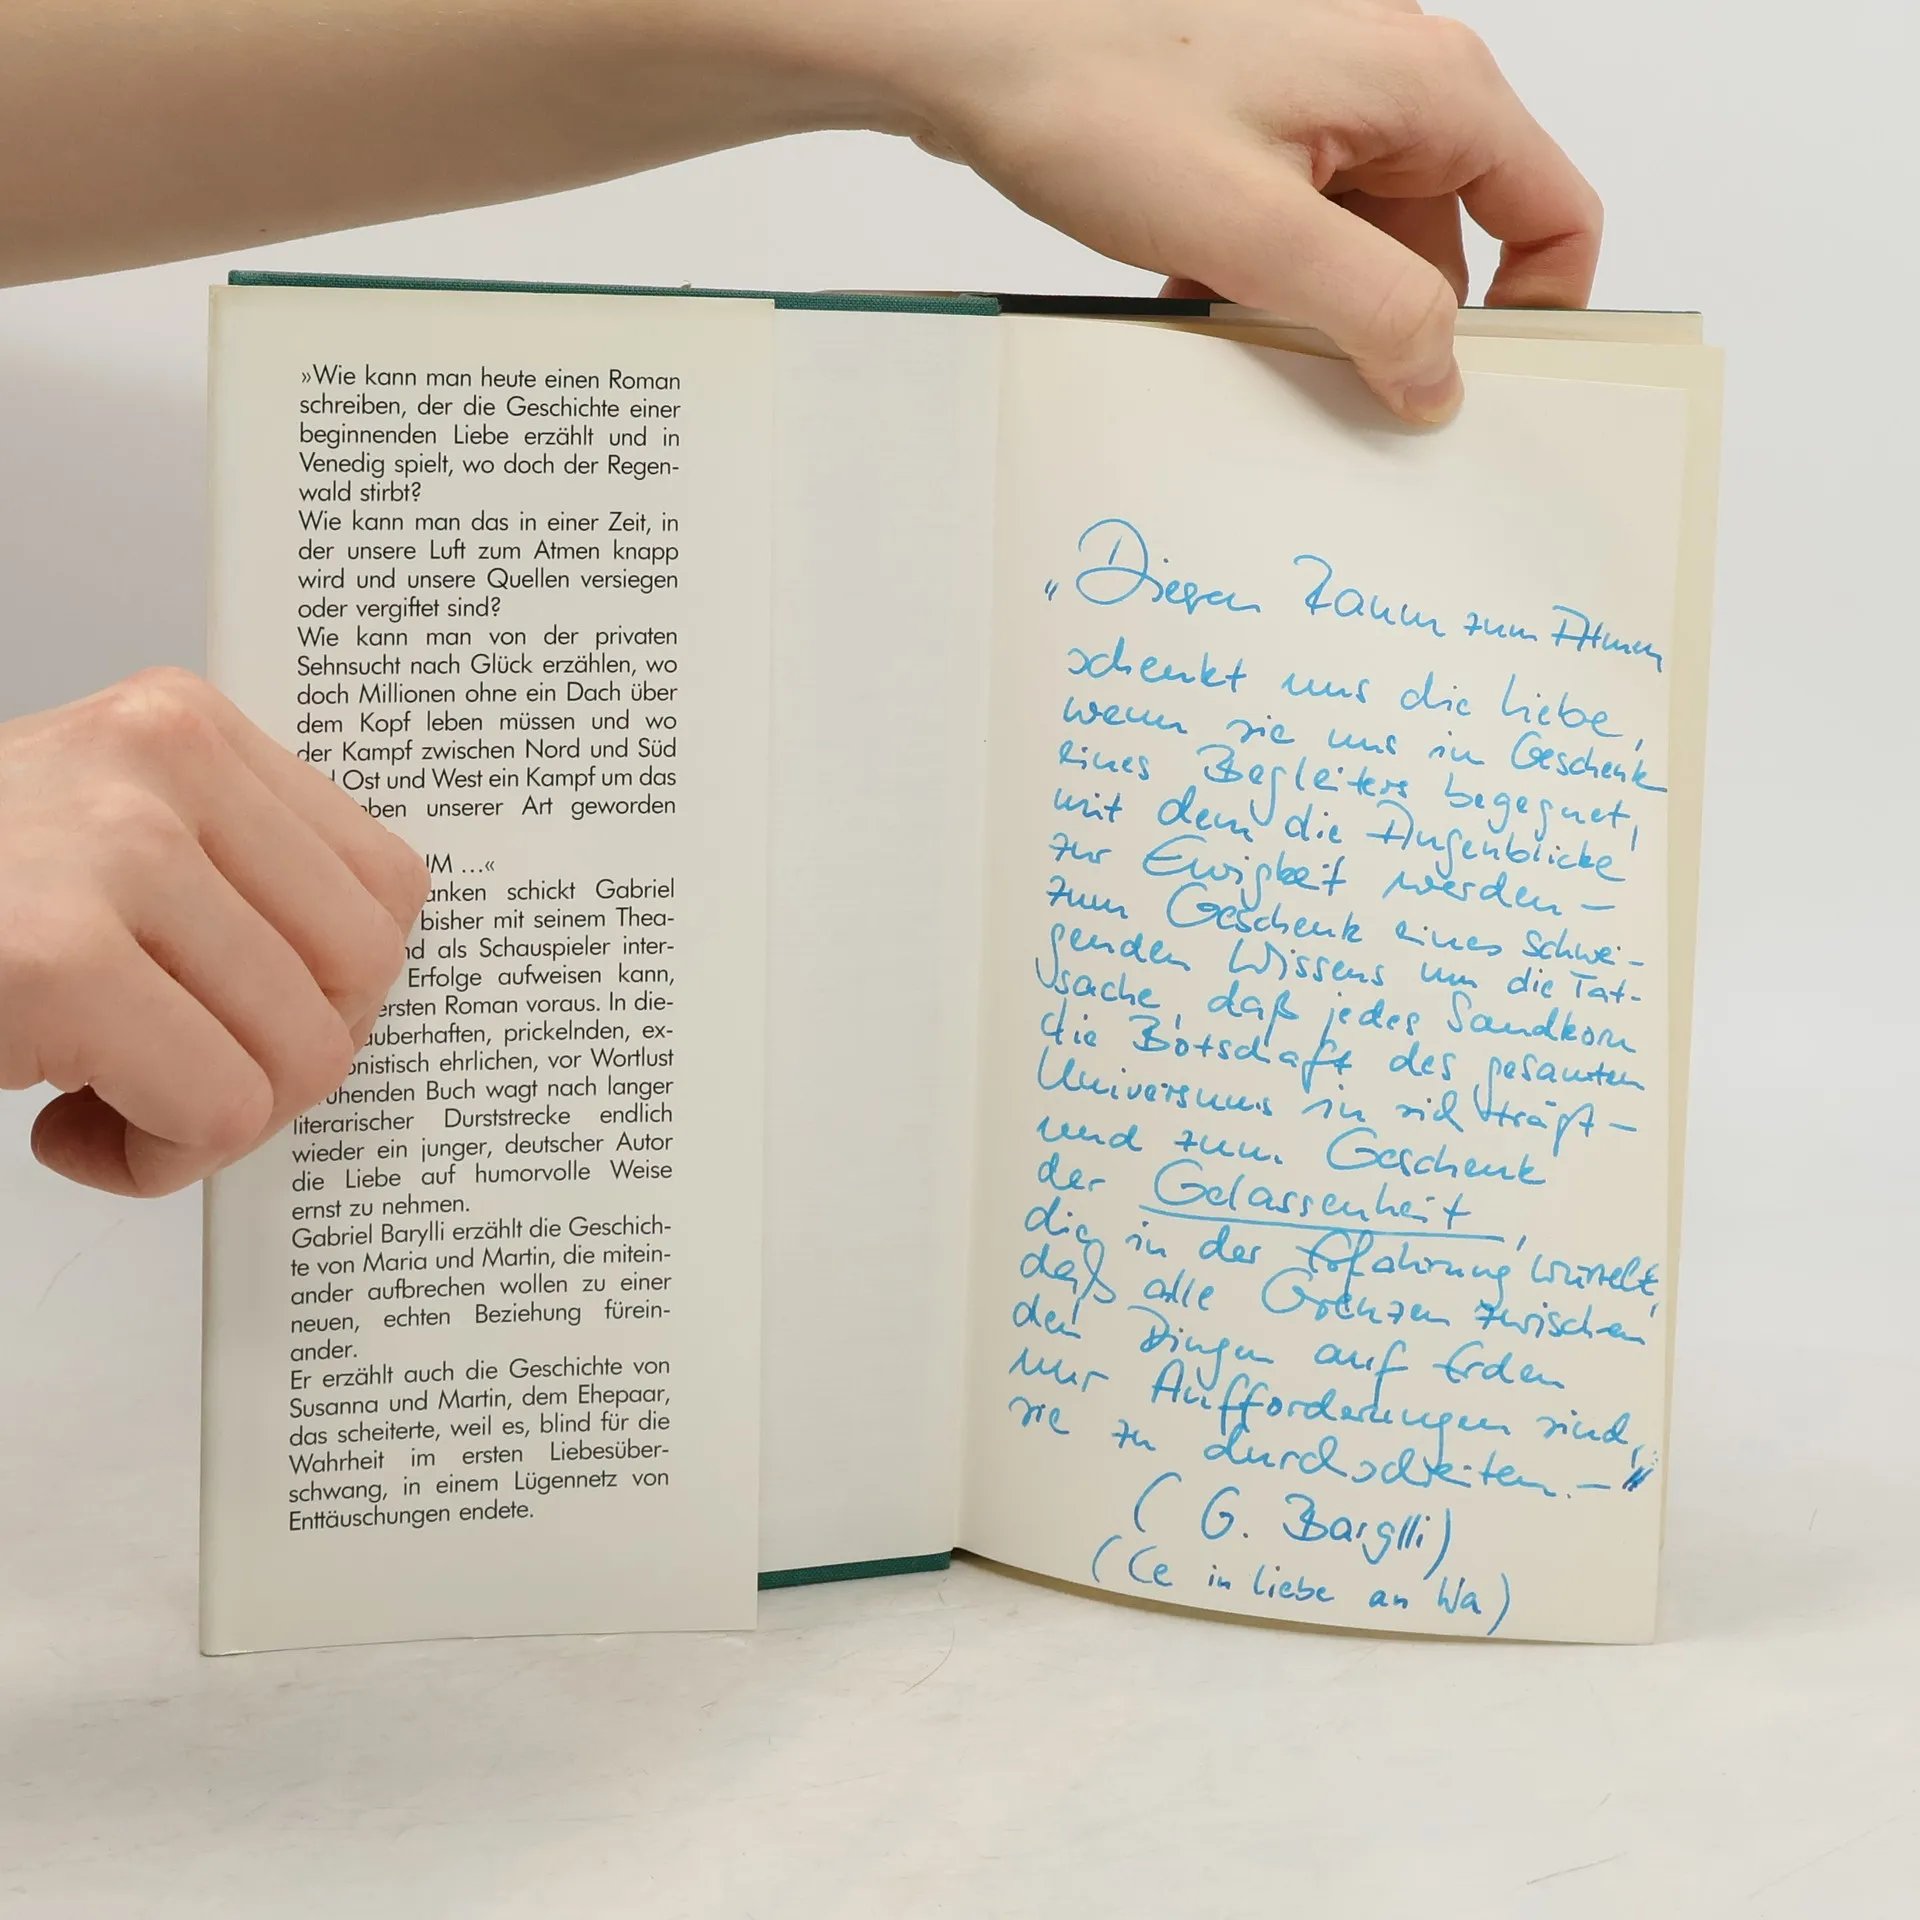 »Wie kann man heute einen Roman
schreiben, der die Geschichte einer
beginnenden Liebe erzählt und in
Venedig spielt, wo doch der Regen-
wald stirbt?
Wie kann man das in einer Zeit, in
der unsere Luft zum Atmen knapp
wird und unsere Quellen versiegen
oder vergiftet sind?
Wie kann man von der privaten
Sehnsucht nach Glück erzählen, wo
doch Millionen ohne ein Dach über
dem Kopf leben müssen und wo
der Kampf zwischen Nord und Süd
Ost und West ein Kampf um das
unserer Art geworden
...«
schickt Gabriel
bisher mit seinem Thea-
als Schauspieler inter-
Erfolge aufweisen kann,
ersten Roman voraus. In die-
prickelnden, ex-
ehrlichen, vor Wortlust
Buch wagt nach langer
literarischer Durststrecke endlich
wieder ein junger, deutscher Autor
die Liebe auf humorvolle Weise
ernst zu nehmen.
Gabriel Barylli erzählt die Geschich-
te von Maria und Martin, die mitein-
ander aufbrechen wollen zu einer
neuen, echten Beziehung fürein-
ander.
Er erzählt auch die Geschichte von
Susanna und Martin, dem Ehepaar,
das scheiterte, weil es, blind für die
Wahrheit im ersten Liebesüber-
schwang, in einem Lügennetz von
Enttäuschungen endete.
„Diesen Raum zum Atmen
schenkt uns die Liebe,
wenn sie uns im Geschenk
eines Begleiters begegnet,
mit dem die Augenblicke
zur Ewigkeit werden –
zum Geschenk eines schwei-
genden Wissens um die Tat-
sache, daß jedes Sandkorn
die Botschaft des gesamten
Universums in sich trägt –
und zum Geschenk
der Gelassenheit,
die in der Erfahrung wurzelt,
daß alle Grenzen zwischen
den Dingen auf Erden
nur Aufforderungen sind,
sie zu durchschreiten. –"
(G. Barylli)
(Ce in Liebe an Wa)